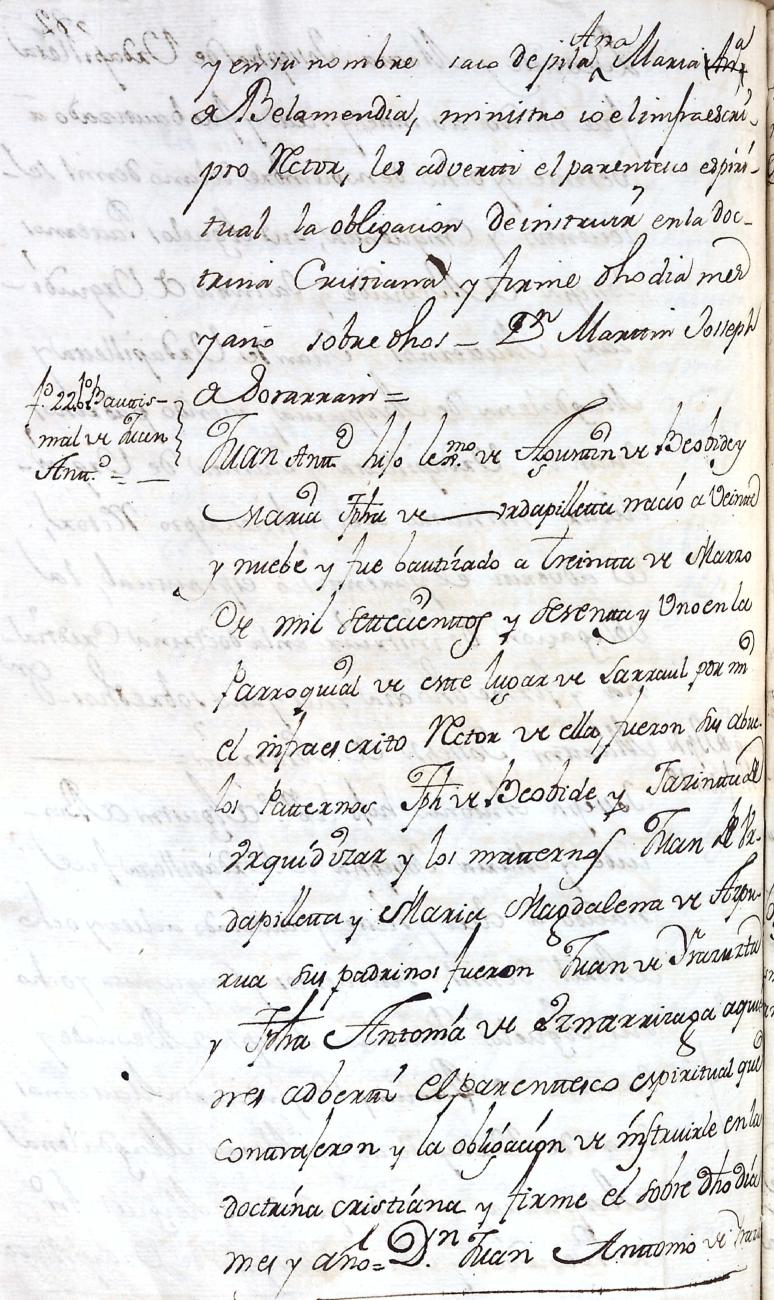 Ana
y en su nombre saco de pila Maria
a Belamendia, ministro io el infraescri-
pto Rctor, les advertti el parentesco espiri-
tual la obligacion de instruir en la doc-
trina Cristiana y firme dho dia mes
y año sobre dhos – Dn Marttin Joseph
a Dorarrain =
fo 22 bto Bauttis-
mal ve Juan
Antto = –
Juan Antto hijo lemo ve Aguttin ve Beobide y
Maria Jpha ve Urdapilletta nació a veintte
y nuebe y fue bautizado a treintta ve Marzo
De mil settecienttos y sesentta y Uno en la
Parroquial ve estte lugar ve Larraul por mi
el infraescrito Rctor ve ella, fueron sus abue-
los Patternos Jph ve Beobide y Jazintta de
Urquidizar y los matternos Juan de Ur-
dapilletta y Maria Magdalena ve Azpu-
rua sus padrinos fueron Juan ve Irazuzta
y Jpha Antonia ve Iznarrizaga a quie-
nes adbertti el parenttesco espiritual que
conttrajeron y la obligación ve instruirle en la
doctrina cristiana y firme el sobre dho dia
mes y año = Dn Juan Anttonio ve